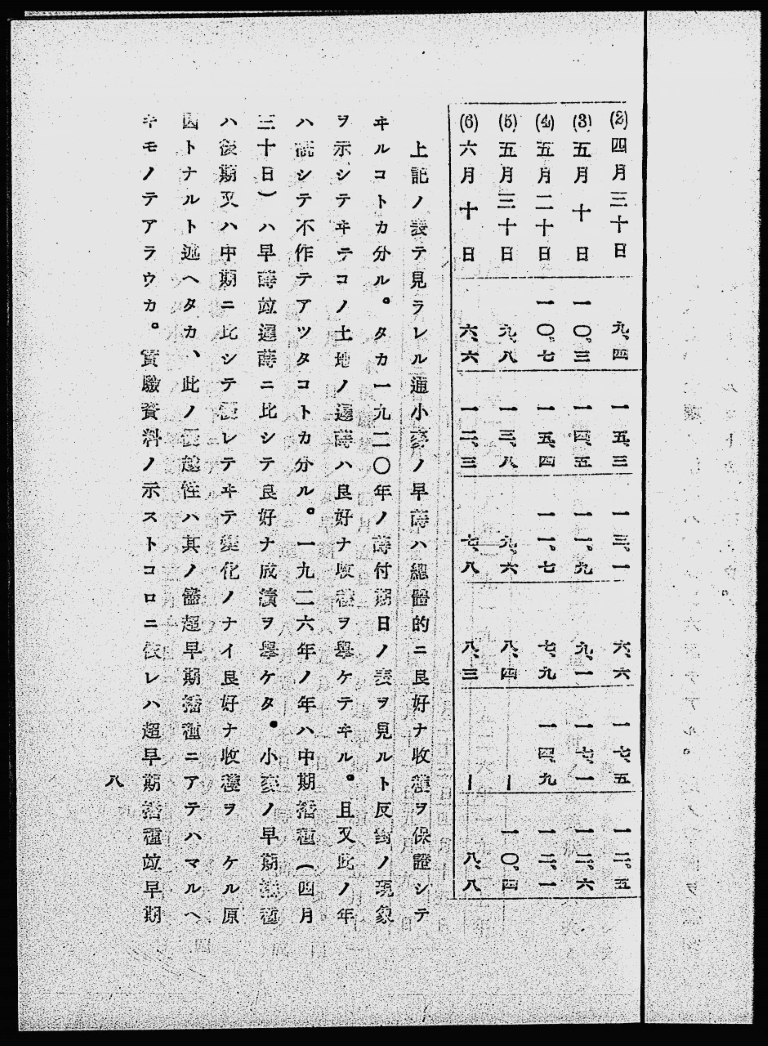 (2) 四月三十日 九、四 一五、三 一三、一 六、六 一七、五 一二、五
(3) 五月十日 一〇、三 一四、五 一一、九 九、一 一七、一 一二、六
(4) 五月二十日 一〇、七 一五、四 一一、七 七、九 一四、九 一二、一
(5) 五月三十日 九、八 一三、八 九、六 八、四 ー 一〇、四
(6) 六月十日 六、六 一二、三 七、八 八、三 ー 八、八
上記ノ表テ見ラレル通小麥ノ早蒔ハ總體的ニ良好ナ收穫ヲ保證シテ
ヰルコトカ分ル。タカ一九二〇年ノ蒔付期日ノ表ヲ見ルト反對ノ現象
ヲ示シテヰテコノ土地ノ遲蒔ハ良好ナ收穫ヲ擧ケテヰル。且又此ノ年
ハ槪シテ不作テアツタコトカ分ル。一九二六年ノ年ハ中期播種(四月
三十日)ハ早蒔竝遲蒔ニ比シテ良好ナ成績ヲ擧ケタ。小麥ノ早期播種
ハ後期又ハ中期ニ比シテ優レテヰテ變化ノナイ良好ナ收穫ヲ ケル原
因トナルト述ヘタカ、此ノ優越性ハ其ノ儘超早期播種ニアテハマルヘ
キモノテアラウカ。實驗資料ノ示ストコロニ依レハ超早期播種竝早期
八